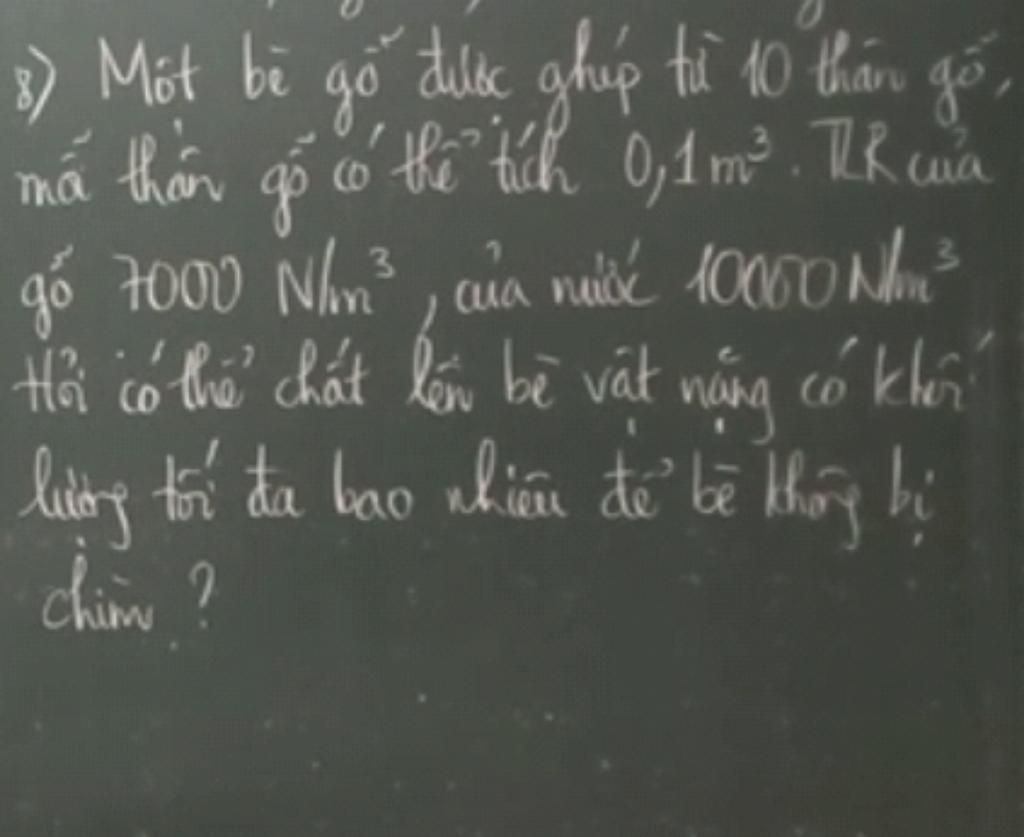 8) Một bè gỗ được ghép từ 10 thân gỗ,
mỗi thân gỗ có thể tích 0,1m³. TLR của
gỗ 7000 N/m³, của nước 10000 N/m³
Hỏi có thể chất lên bè vật nặng có khối
lượng tối đa bao nhiêu để bè không bị
chìm ?